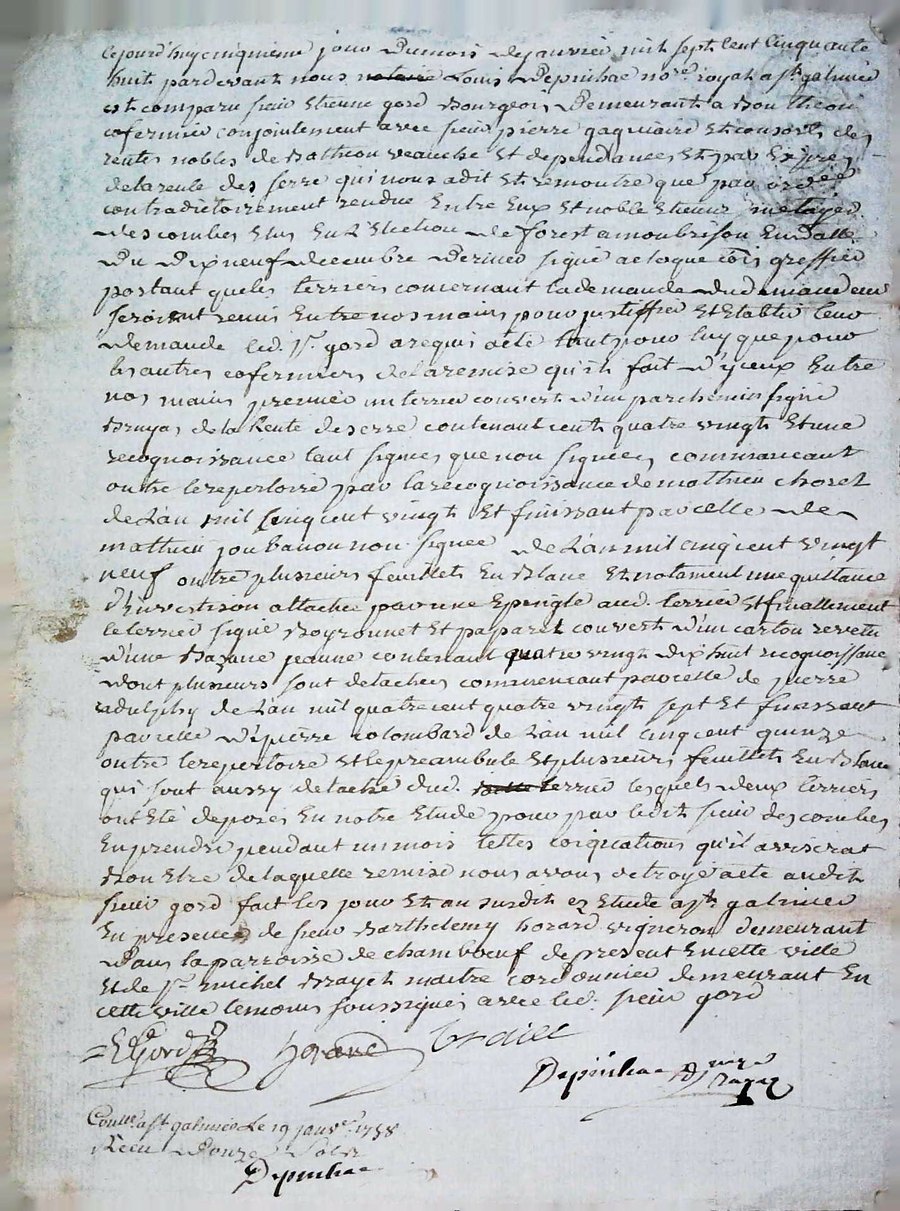 Cejourd'huy cinquieme jour du mois de janvier mil sept cent cinquante
huit pardevant nous notaire Louis Depinhac no.re royal a st galmier
est comparu sieur Etienne gord Bourgeois demeurant a Boutheon
cofermier conjointement avec sieur pierre gagniaire et consorts des
rentes nobles de Botheon veauche et dependances et par exprés
delareule des serre qui nous a dit et remontre que par ordce
contradictoirement rendue Entre Eux et noble Etienne metayer
descombes Elus En L'Election de forest a monbrison En datte
du dixneuf decembre dernier signé greffier
portant queles terriers concernant lademande dudemandeur
seroient remis Entre nos mains pour justiffier Et Etablir leur
demande led. sr. gord a requis acte tant pour luy que pour
les autres cofermiers delaremise qu'il fait d'yceux Entre
nos mains premier un terrier couvert d'un parchemin signé
Bruyas de la Rente de serre contenant cent quatre vingts Et une
recognoissance tant signés que non signées, commancant
outre lerepertoire par larecognoissance de mathieu chorel
de L'an mil cinq cent vingt Et finissant par celle de
mathieu joubanou non signee de L'an mil cinq cent vingt
neuf outre plusieurs feuillets En Blanc Et notament une quittance
d'investison attachée par une Epingle aud. terrier et finallement
le terrier signé Boyronnet Et paparel couvert d'un carton revetu
d'une Bazane jeanne contenant quatre vingt dix huit recognoissance
dont plusieurs sont detachées commencant par celle de pierre
adulphy de L'an mil quatre cent quatre vingt sept Et finissant
par celle d'pierre colombard de L'an mil cinq cent quinze
outre lerepertoire Et lepreambule et plusieurs feuillets En Blanc
qui sont aussy detaché dud. terrier lesquels deux terriers
ont Eté deposés En notre Etude pour par ledit sieur descombes
En prendre pendant un mois telles coiquations qu'il aviserat
Bon Etre de laquelle remise nous avons octroyé acte audit
sieur gord fait les jour Et an susdits ez Etude a st galmier
En presence de sieur Barthelemy horard vigneron demeurant
dans la parroisse de chambœuf de present En cette ville
Et de sr. michel Brayet maitre cordonnier demeurant En
cette ville temoins soussignés avec led. sieur gord
E Gord horard
Depinhac
Contlé. a st galmier Le 19 janv.er 1758
Reçu douze sols
Depinhac